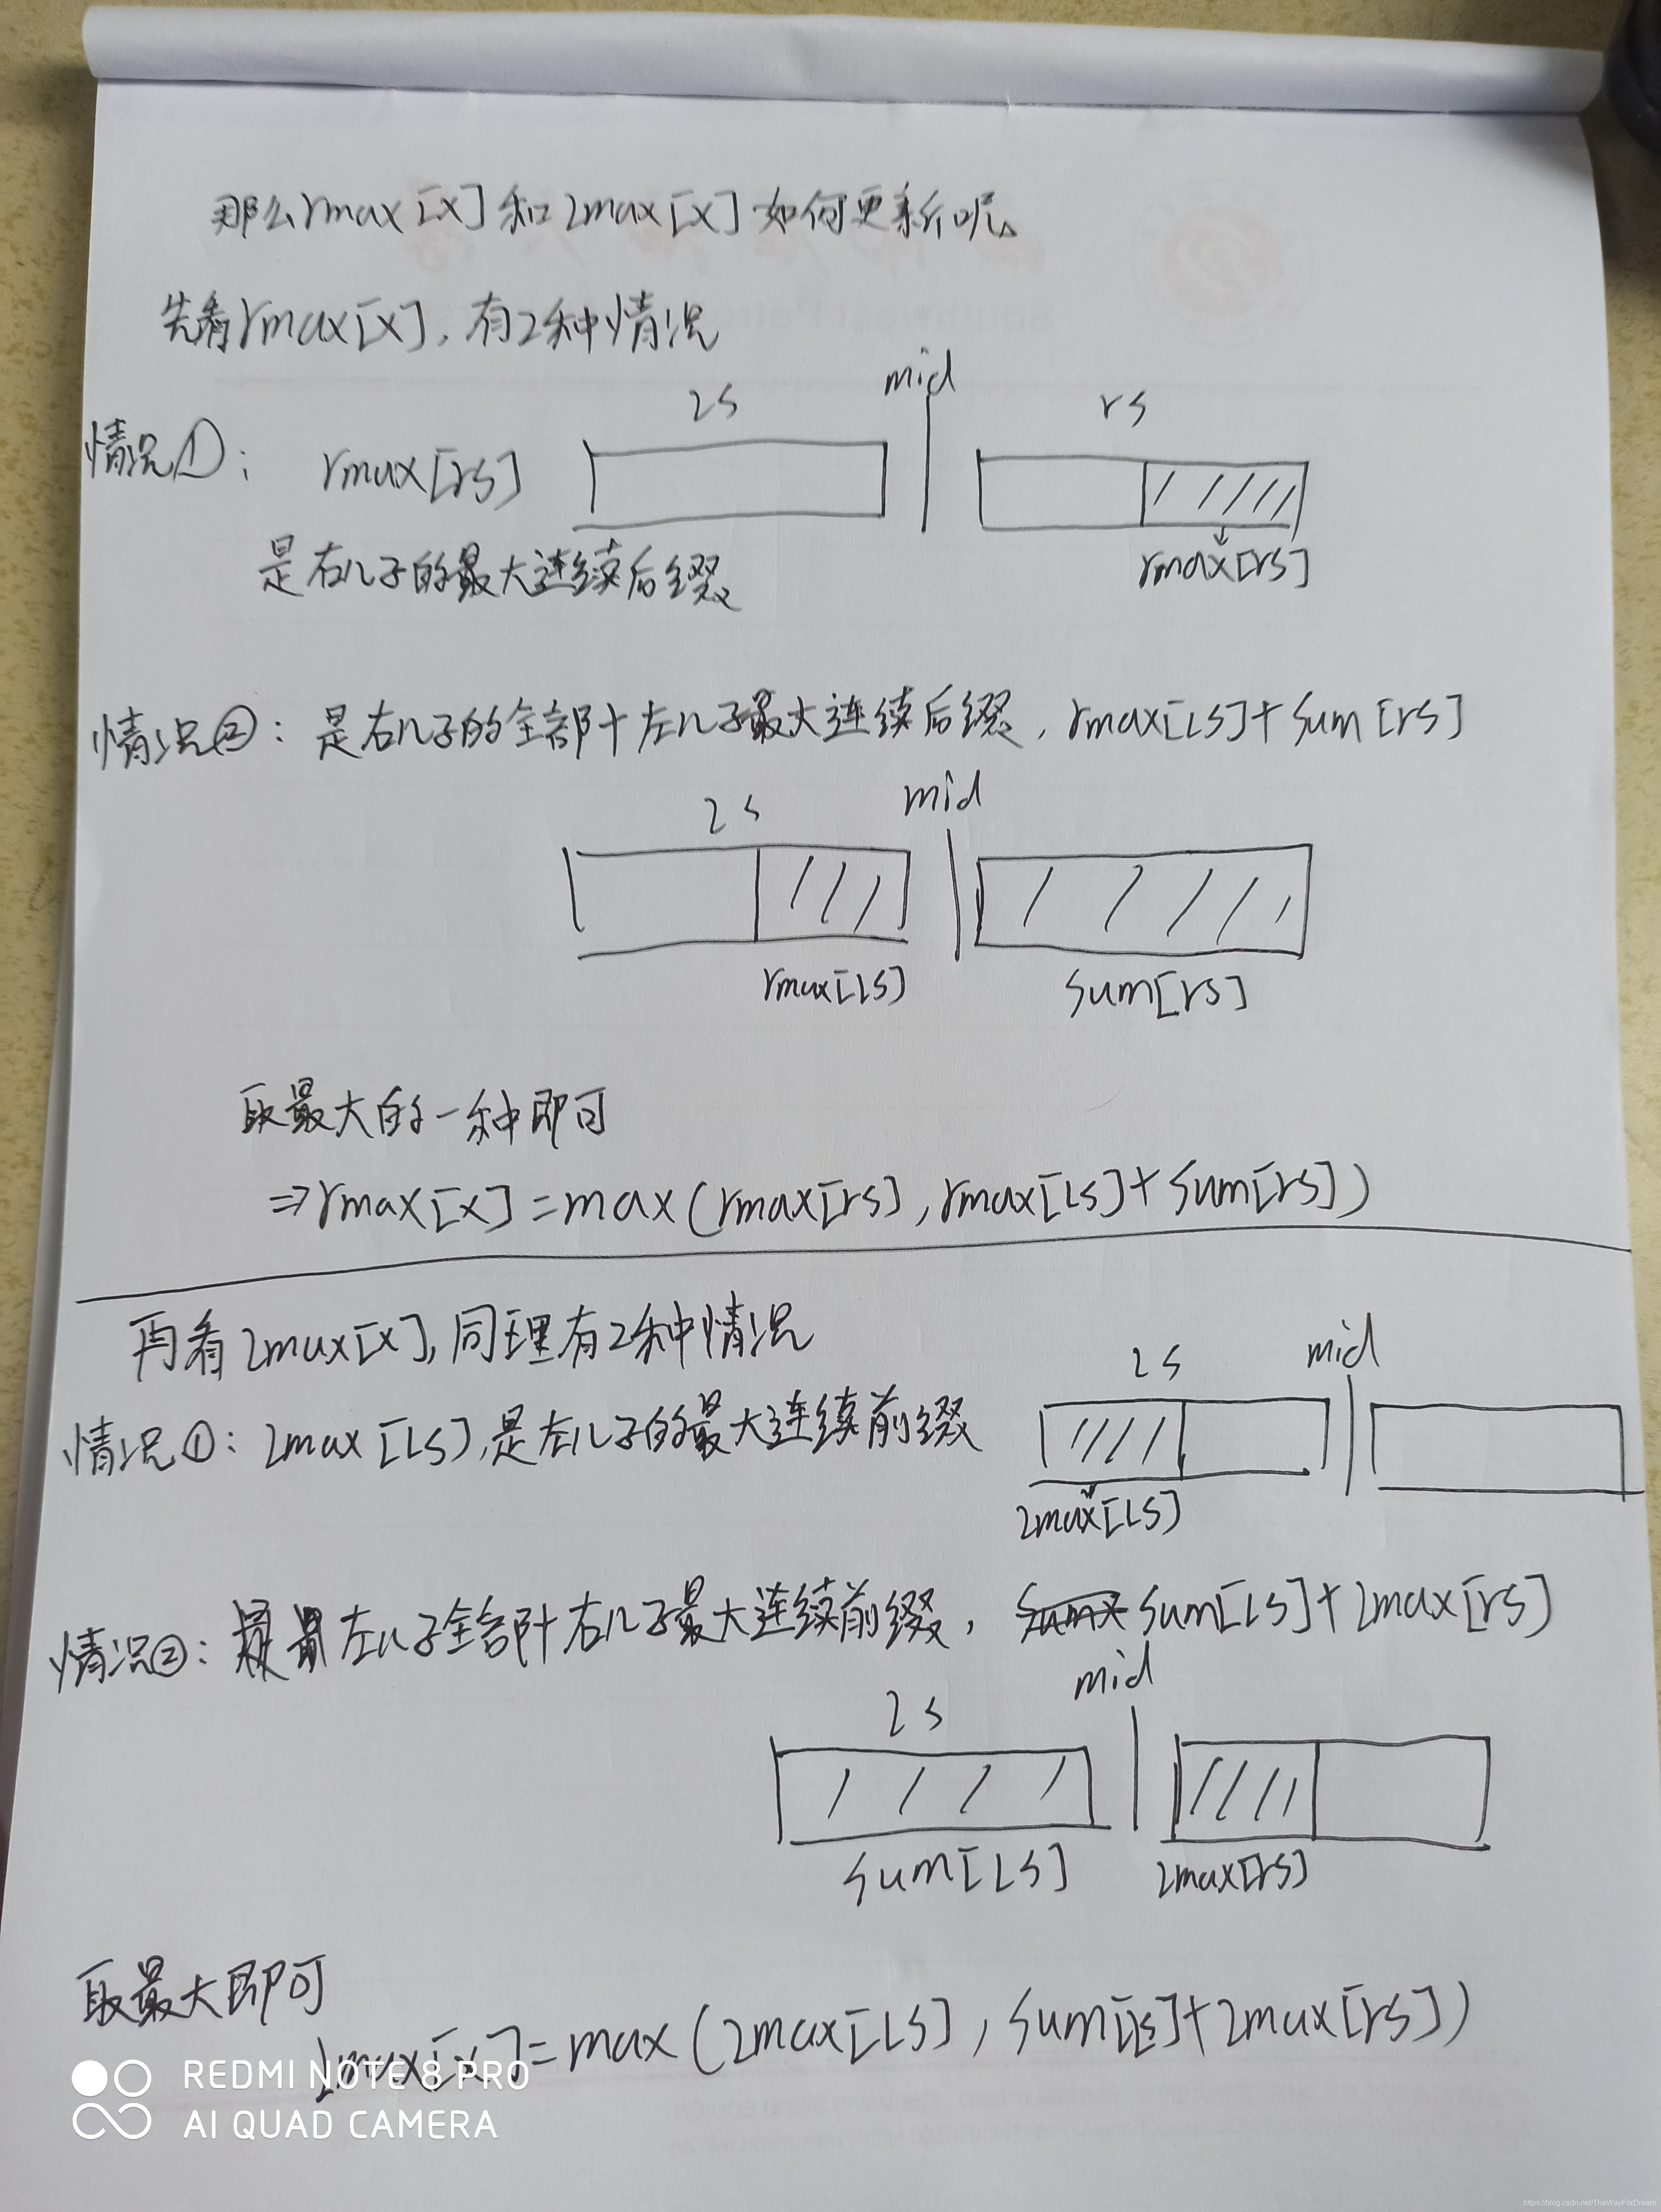 那么rmax[x]和lmax[x]如何更新呢。
先看rmax[x],有2种情况
ls mid rs
情况①: rmax[rs]
是右儿子的最大连续后缀
rmax[rs]
情况②: 是右儿子的全部+左儿子最大连续后缀, rmax[ls]+sum[rs]
ls mid
rmax[ls] sum[rs]
取最大的一种即可
⇒rmax[x]=max(rmax[rs],rmax[ls]+sum[rs])
再看lmax[x],同理有2种情况
ls mid
情况①: lmax[ls],是左儿子的最大连续前缀
lmax[ls]
情况②: 左儿子全部+右儿子最大连续前缀, sum[ls]+lmax[rs]
ls mid
sum[ls] lmax[rs]
取最大即可
lmax[x]=max(lmax[ls],sum[ls]+lmax[rs])
REDMI NOTE 8 PRO
AI QUAD CAMERA
https://blog.csdn.net/TheWayForDream